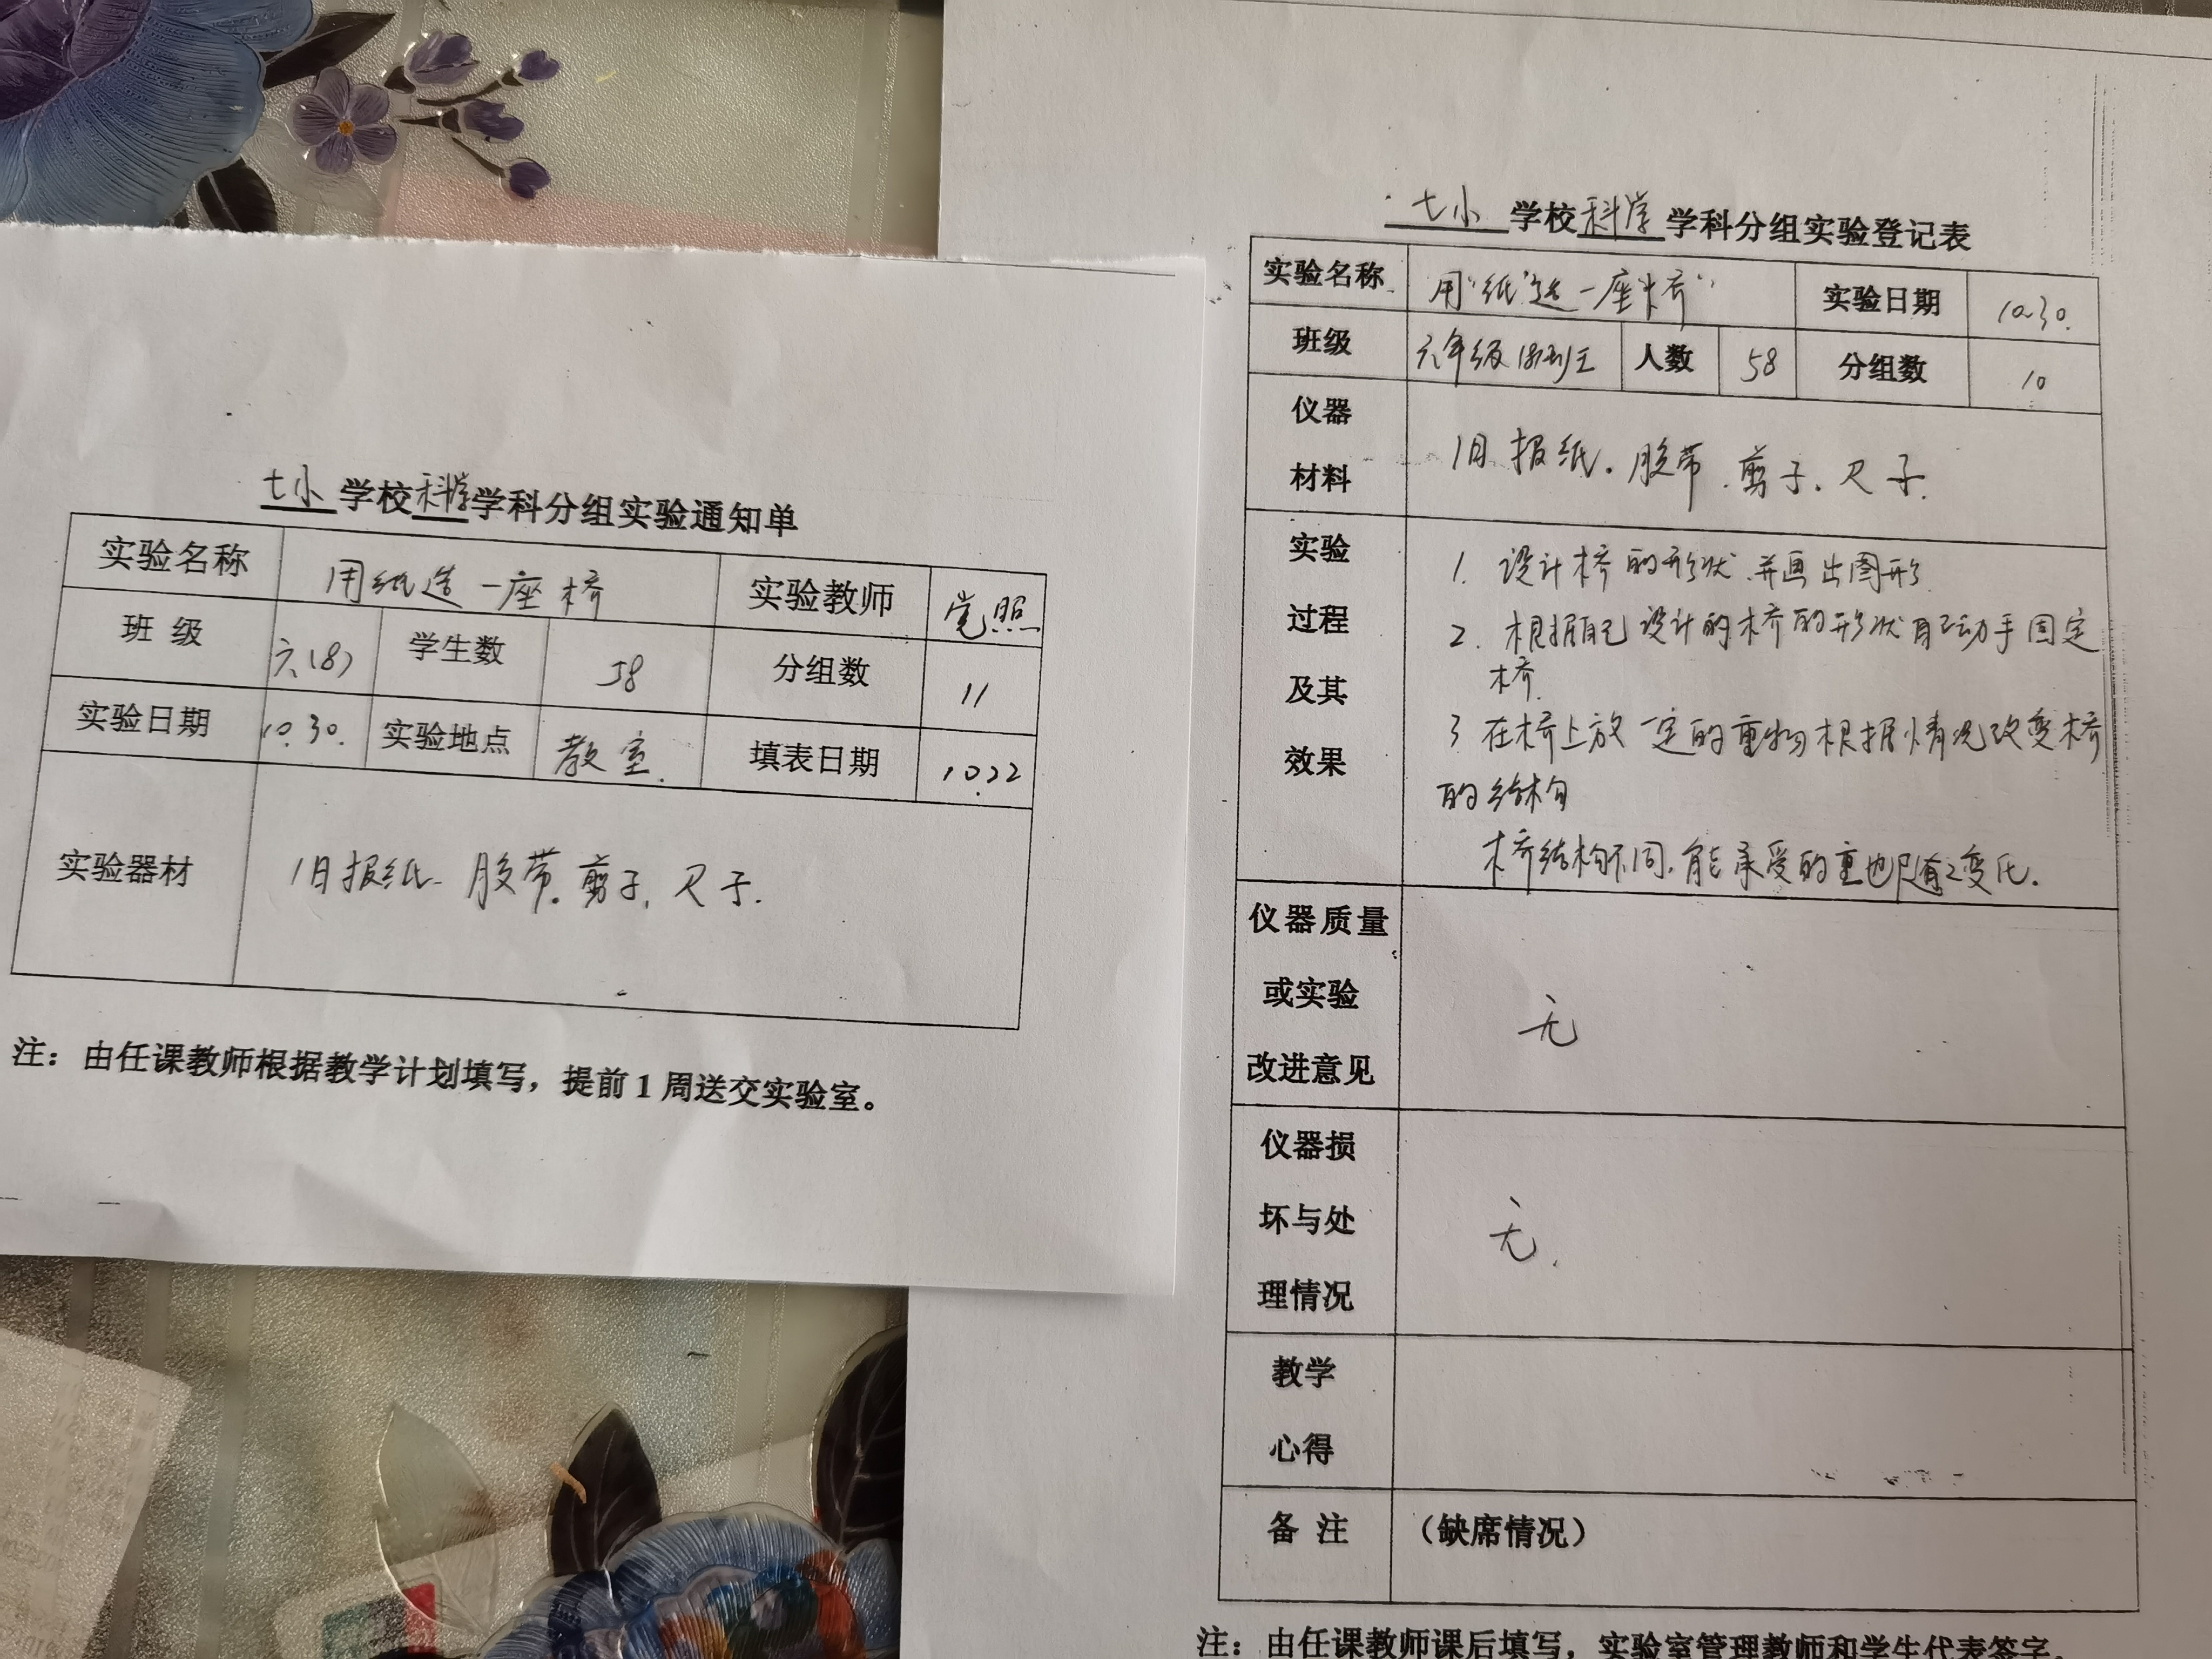 七小 学校 科学 学科分组实验通知单
实验名称 用纸造一座桥 实验教师 党照
班 级 六(8) 学生数 58 分组数 11
实验日期 10.30. 实验地点 教室. 填表日期 10.22
实验器材 旧报纸. 胶带. 剪子. 尺子.
注：由任课教师根据教学计划填写，提前 1 周送交实验室。
七小 学校 科学 学科分组实验登记表
实验名称 用“纸”造一座“桥” 实验日期 10.30.
班级 六年级 人数 58 分组数 10
仪器
材料
旧报纸. 胶带. 剪子. 尺子.
实验
过程
及其
效果
1. 设计桥的形状.并画出图形
2. 根据自己设计的桥的形状自己动手固定
桥.
3 在桥上放一定的重物根据情况改变桥
的结构
桥结构不同.能承受的重也有变化.
仪器质量
或实验
改进意见
无
仪器损
坏与处
理情况
无.
教学
心得
备 注 （缺席情况）
注：由任课教师课后填写，实验室管理教师和学生代表签字。